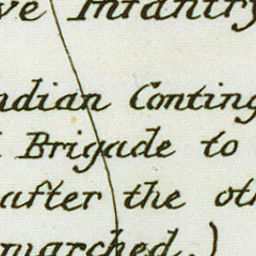 ve Infantry
ndian Conting
Brigade to
after the oth
marched.)